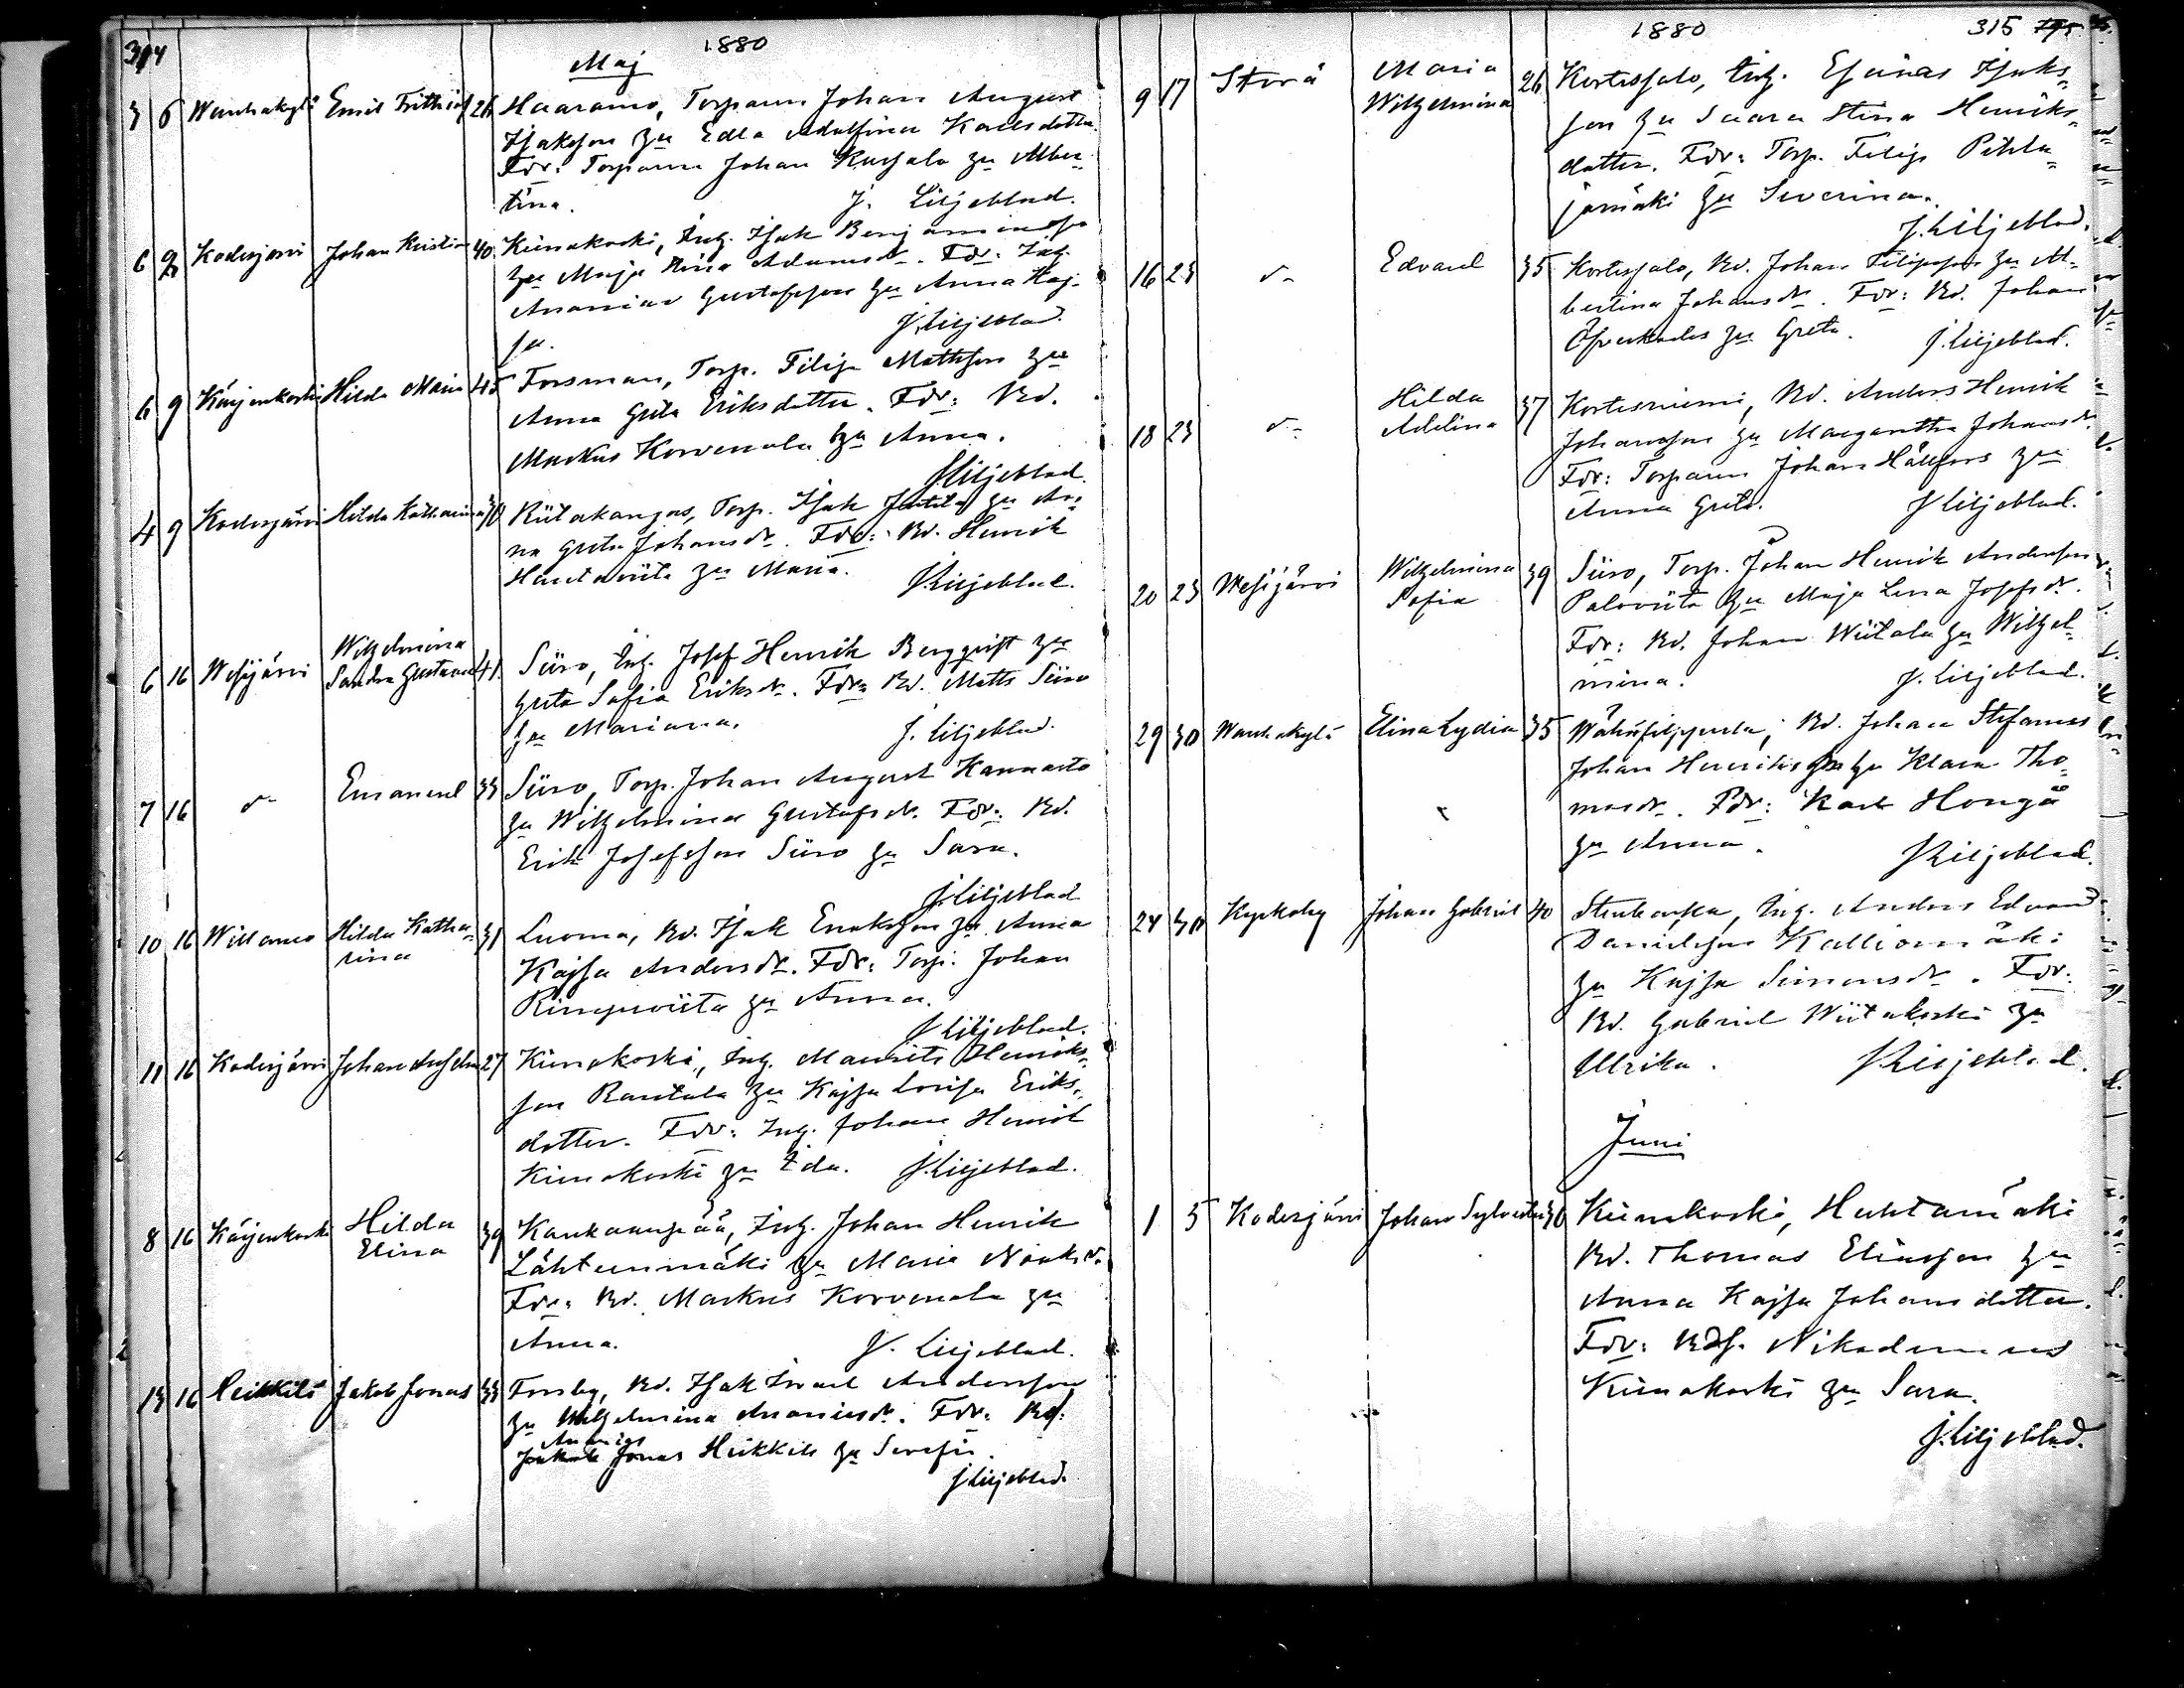 314
1880
Maj
3 6 Wanhakylä Emil Frithiof 26 Haaramo, Torparen Johan August
Isaksson & Edla Adolfina Karlsdotter.
Fdr: Torparen Johan Kurjala & Alber-
tina. J. Liljeblad.
6 9 Kodesjärvi Johan Kristian 40 Kiinakoski, Inh. Isak Benjaminsson
& Maja Stina Adamsdr. Fdr: Inh.
Ananias Gustafsson & Anna Kaj-
sa. J. Liljeblad.
6 9 Kärjenkoski Hilda Maria 45 Forsman, Torp. Filip Mattsson &
Anna Greta Eriksdotter. Fdr: Bd.
Markus Korvenala & Anna.
J. Liljeblad.
4 9 Kodesjärvi Hilda Katharina Riitakangas, Torp. Isak &  An-
na Greta Johansdr. Fdr: Bd. Henrik
Hautaviita & Maria. J. Liljeblad.
6 16 Wesijärvi Wilhelmina Sandra Gustava 41 Siiro, Inh. Josef Henrik Bergqvist &
Greta Sofia Eriksdr. Fdr: Bd. Matts Siiro
& Mariana. J. Liljeblad.
7 16 d:o Emanuel 33 Siiro, Torp. Johan August Kannasto
& Wilhelmina Gustafsdr. Fdr: Bd.
Erik Josefsson Siiro & Sara.
J. Liljeblad
10 16 Willamo Hilda Katha-rina 31 Luoma, Bd. Isak Enoksson & Anna
Kajsa Andersdr. Fdr: Torp. Johan
Rimpiviita & Anna.
J. Liljeblad.
11 16 Kodesjärvi Johan Anshelm 27 Kiinakoski, Inh. Maurits Henriks-
son Rantala & Kajsa Lovisa Eriks-
dotter. Fdr: Inh. Johan Henrik
Kiinakoski & Ida. J. Liljeblad.
8 16 Kärjenkoski Hilda Elina 39 Kankaanpää, Inh. Johan Henrik
Lähteenmäki & Maria Noaksdr.
Fdr: Bd. Markus Korvenala &
Anna. J. Liljeblad.
13 16 Heikkilä Jakob Jonas 33 Forsby, Bd. Isak Israel Andersson
& Wilhelmina Ananiasdr. Fdr: Bd:
Ananias
Jakob Jonas Heikkilä & Serafia.
J. Liljeblad.
1880
315
9 17 Storå Maria Wilhelmina 26 Kortessalo, Inh. Esaias Isaks-
son & Saara Stina Henriks-
dotter. Fdr: Torp. Filip Pihla-
jamäki & Severina.
J. Liljeblad.
16 23 d:o Edvard 35 Kortessalo, Bd. Johan Filipsson & Al-
bertina Johansdr. Fdr: Bd. Johan
Öfverkodes & Greta. J. Liljeblad.
18 23 d:o Hilda Adelina 37 Kortesniemi, Bd. Anders Henrik
Johansson & Margaretha Johansdr.
Fdr: Torparen Johan Hållfors &
Anna Greta. J. Liljeblad.
20 23 Wesijärvi Wilhelmina Sofia 39 Siiro, Torp. Johan Henrik Andersson
Paloviita & Maja Lena Josefsdr.
Fdr: Bd. Johan Wiitala & Wilhel-
mina. J. Liljeblad.
29 30 Wanhakylä Elina Lydia 35 Wähäfilppula, Bd. Johan Stefanus
Johan Henriksson & Klara Tho-
masdr. Fdr: Karl Hongå
& Anna. J. Liljeblad.
24 30 Kyrkoby Johan Gabriel 40 Stenbacka, Inh. Anders Edvard
Danielsson Kalliomäki
& Kajsa Simonsdr. Fdr:
Bd. Gabriel Wiitakoski &
Ulrika. J. Liljeblad.
Juni
1 5 Kodesjärvi Johan Sylvester 36 Kiinakoski, Huhtamäki
Bd. Thomas Eliasson &
Anna Kajsa Johansdotter.
Fdr: Bds. Nikodemus
Kiinakoski & Sara.
J. Liljeblad.